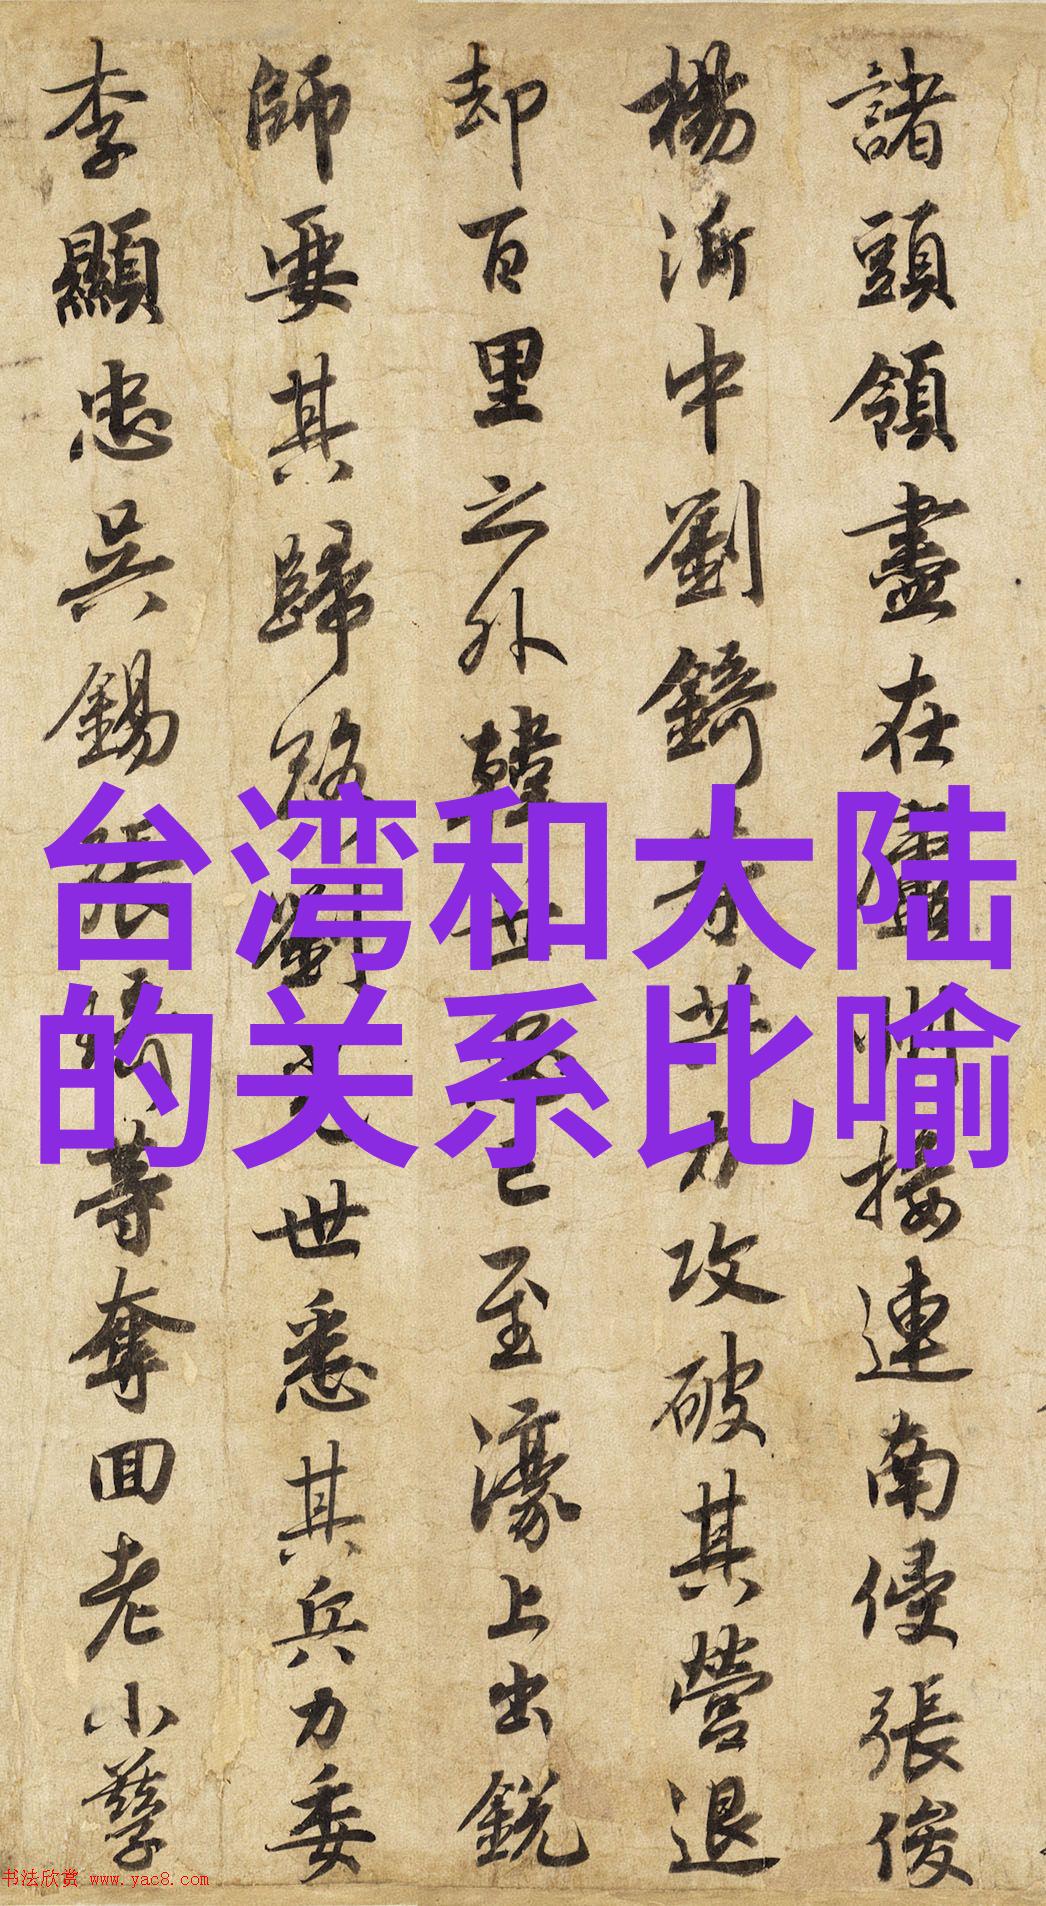 諸頭領盡在廬州接連南侵張俊
楊沂中劉錡等共力攻破其營退
却百里之外韓世忠已至濠上出鋭
師要其歸路劉光世悉其兵力委
李顯忠吳錫張琦等奪回老小孳
台湾和大陆
的关系比喻
书法欣赏 www.yac8.com